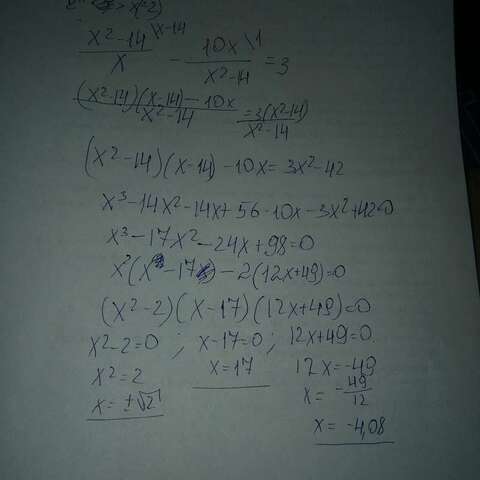 > x(x²-2)
x²-14\x-14 / x - 10x\1 / x²-14 = 3
(x²-14)(x-14)-10x / x²-14 = 3(x²-14) / x²-14
(x²-14)(x-14)-10x=3x²-42
x³-14x²-14x+56-10x-3x²+42=0
x³-17x²-24x+98=0
x²(x-17)-2(12x+49)=0
(x²-2)(x-17)(12x+49)=0
x²-2=0 ; x-17=0 ; 12x+49=0
x²=2 x=17 12x=-49
x=±√2 x= -49/12
x=-4,08